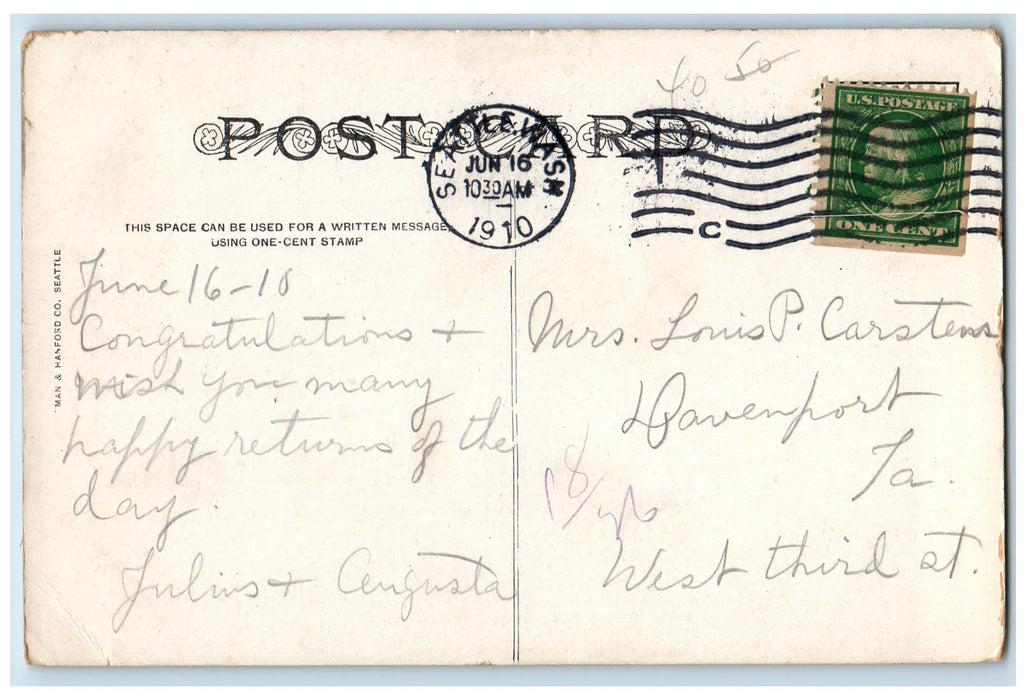 40 50
POST CARD
U.S. POSTAGE
ONE CENT
SEATTLE, WASH
JUN 16
1030 AM
1910
C
THIS SPACE CAN BE USED FOR A WRITTEN MESSAGE
USING ONE-CENT STAMP
MAN & HANFORD CO. SEATTLE
June 16-10
Congratulations +
wish you many
happy returns of the
day.
Julius + Augusta
Mrs. Louis P. Carstens
Davenport
Ia.
West third st.